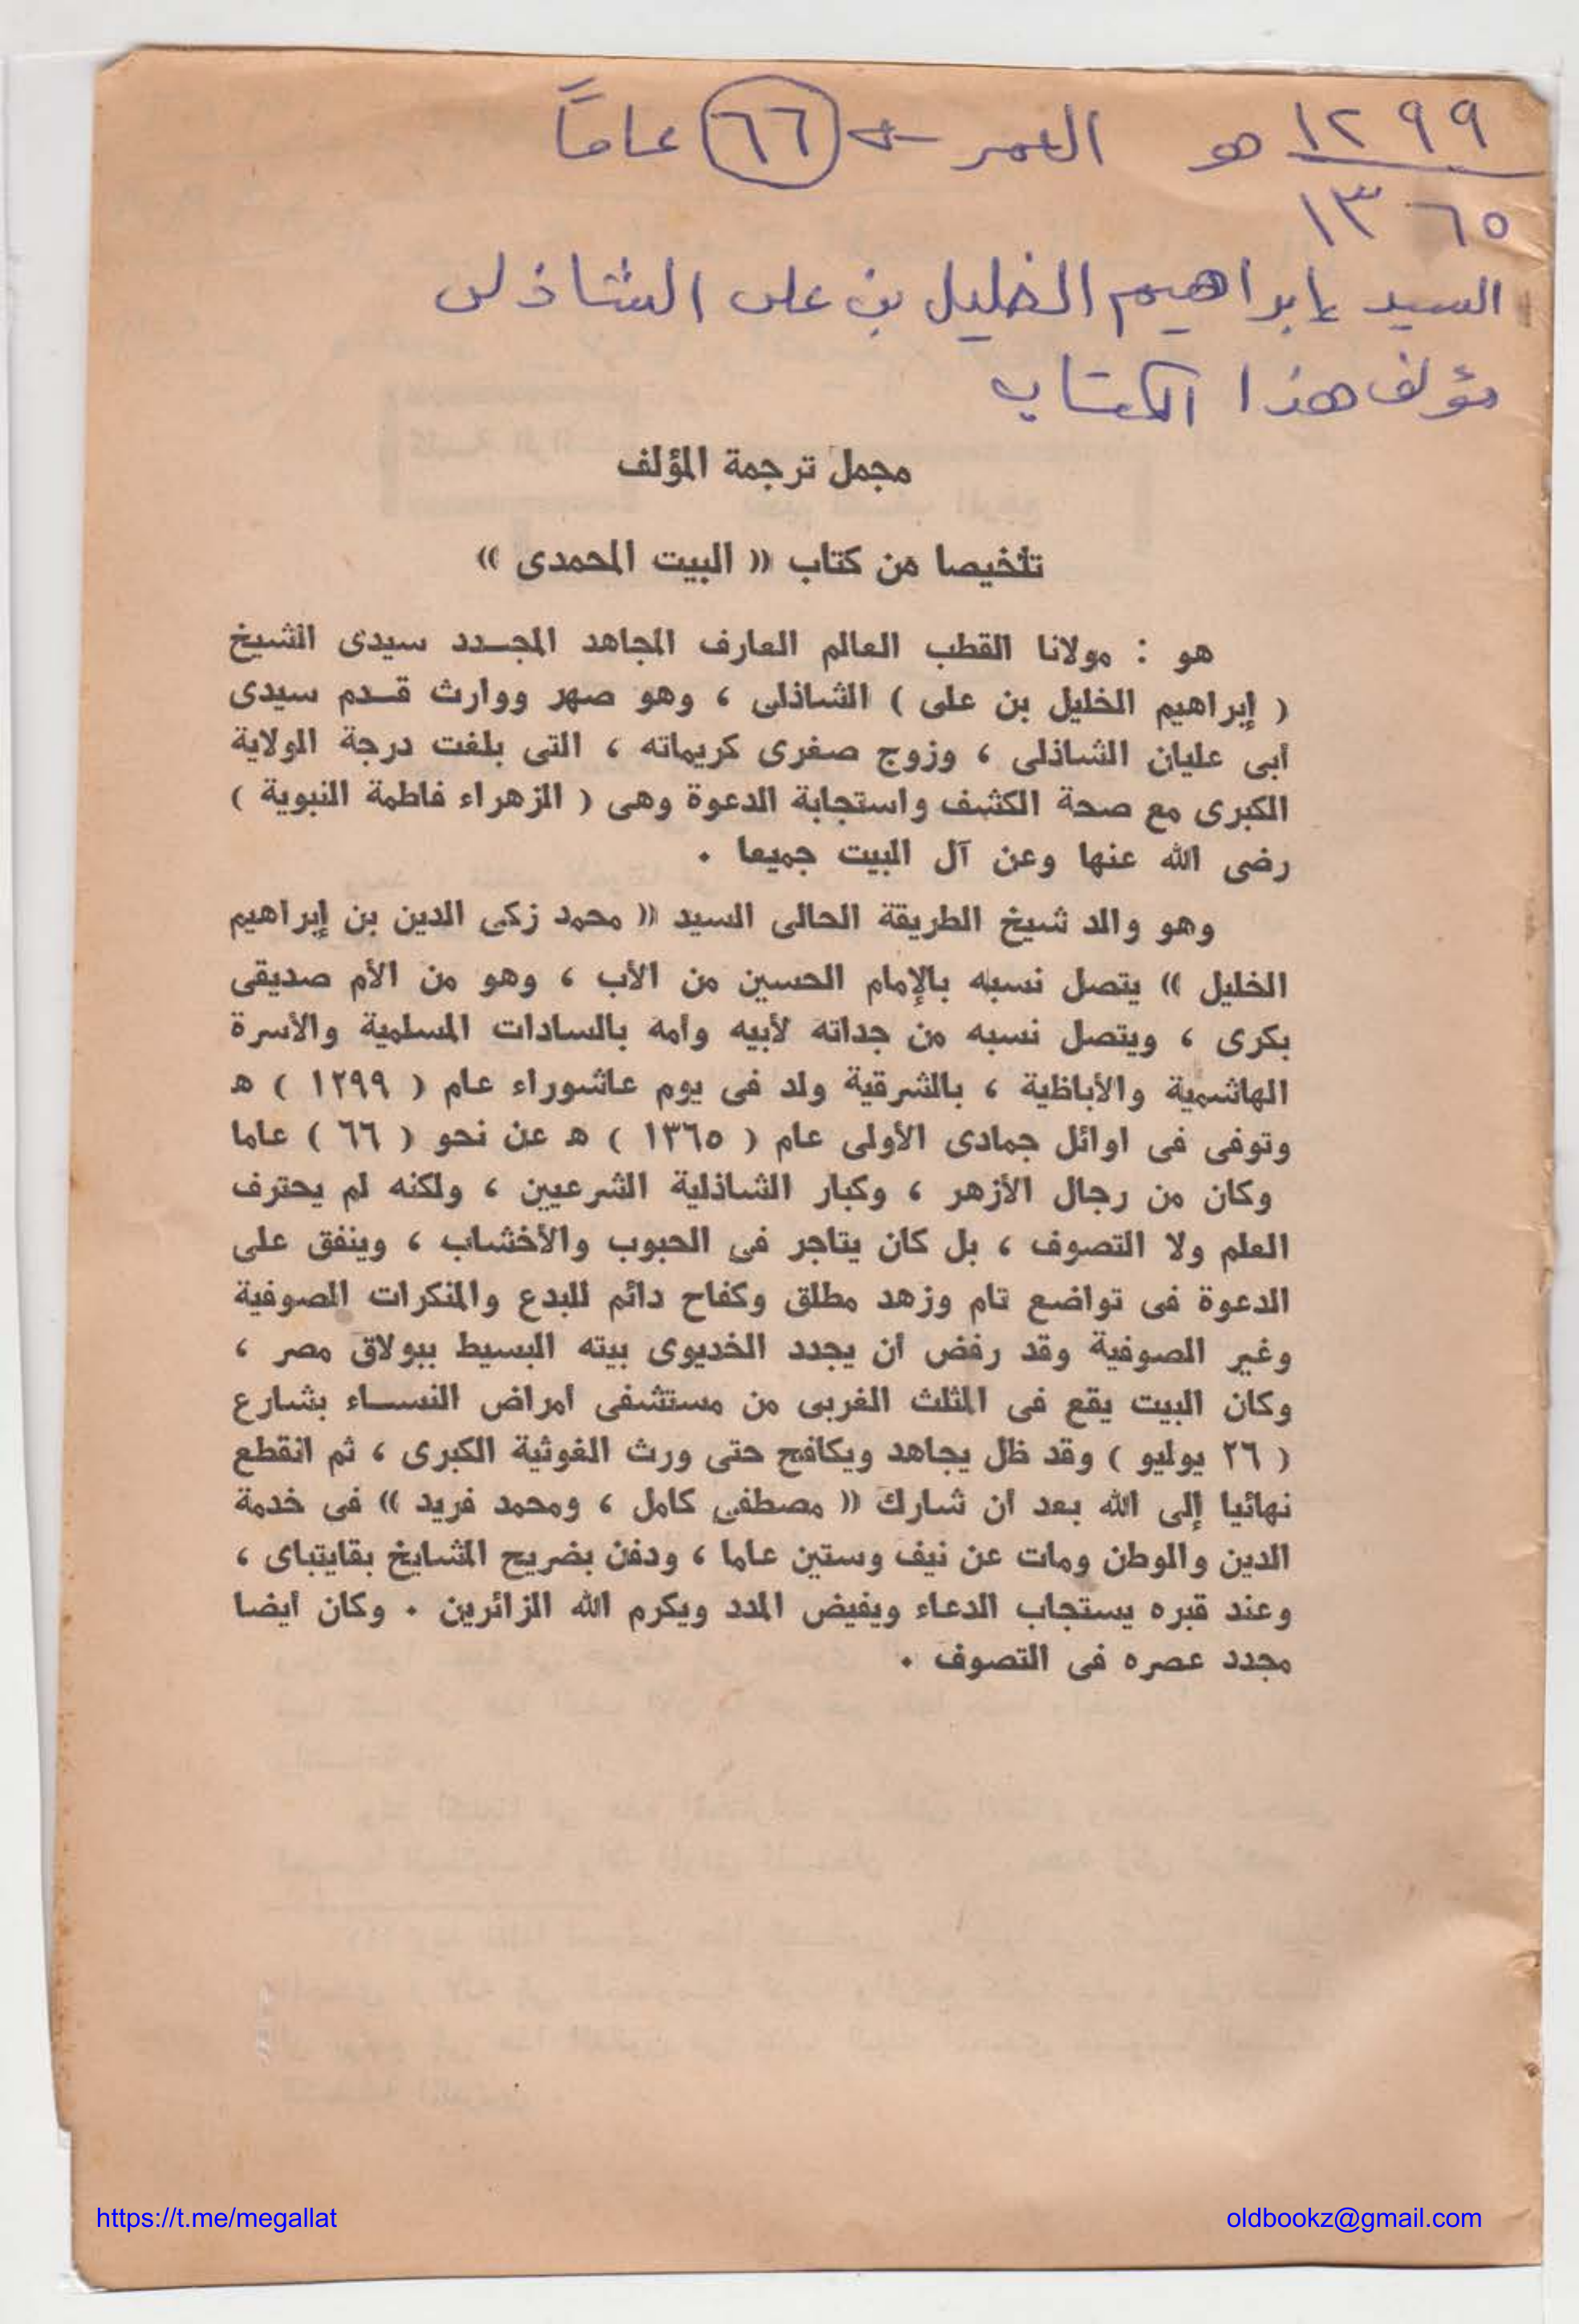 ١٢٩٩ هـ العمر ← ٦٦ عاماً
١٣٦٥
السيد إبراهيم الخليل بن على الشاذلى
مؤلف هذا الكتاب
مجمل ترجمة المؤلف
تلخيصا من كتاب (( البيت المحمدى ))
هو : مولانا القطب العالم العارف المجاهد المجـدد سيدى الشيخ
( إبراهيم الخليل بن على ) الشاذلى ، وهو صهر ووارث قـدم سيدى
أبى عليان الشاذلى ، وزوج صغرى كريماته ، التى بلغت درجة الولاية
الكبرى مع صحة الكشف واستجابة الدعوة وهى ( الزهراء فاطمة النبوية )
رضى الله عنها وعن آل البيت جميعا .
وهو والد شيخ الطريقة الحالى السيد (( محمد زكى الدين بن إبراهيم
الخليل )) يتصل نسبه بالإمام الحسين من الأب ، وهو من الأم صديقى
بكرى ، ويتصل نسبه من جداته لأبيه وأمه بالسادات المسلمية والأسرة
الهاشمية والأباظية ، بالشرقية ولد فى يوم عاشوراء عام ( ١٢٩٩ ) هـ
وتوفى فى اوائل جمادى الأولى عام ( ١٣٦٥ ) هـ عن نحو ( ٦٦ ) عاما
وكان من رجال الأزهر ، وكبار الشاذلية الشرعيين ، ولكنه لم يحترف
العلم ولا التصوف ، بل كان يتاجر فى الحبوب والأخشاب ، وينفق على
الدعوة فى تواضع تام وزهد مطلق وكفاح دائم للبدع والمنكرات الصوفية
وغير الصوفية وقد رفض أن يجدد الخديوى بيته البسيط ببولاق مصر ،
وكان البيت يقع فى المثلث الغربى من مستشفى أمراض النسـاء بشارع
( ٢٦ يوليو ) وقد ظل يجاهد ويكافح حتى ورث الغوثية الكبرى ، ثم انقطع
نهائيا إلى الله بعد أن شارك (( مصطفى كامل ، ومحمد فريد )) فى خدمة
الدين والوطن ومات عن نيف وستين عاما ، ودفن بضريح المشايخ بقايتباى ،
وعند قبره يستجاب الدعاء ويفيض المدد ويكرم الله الزائرين . وكان أيضا
مجدد عصره فى التصوف .
https://t.me/megallat
oldbookz@gmail.com